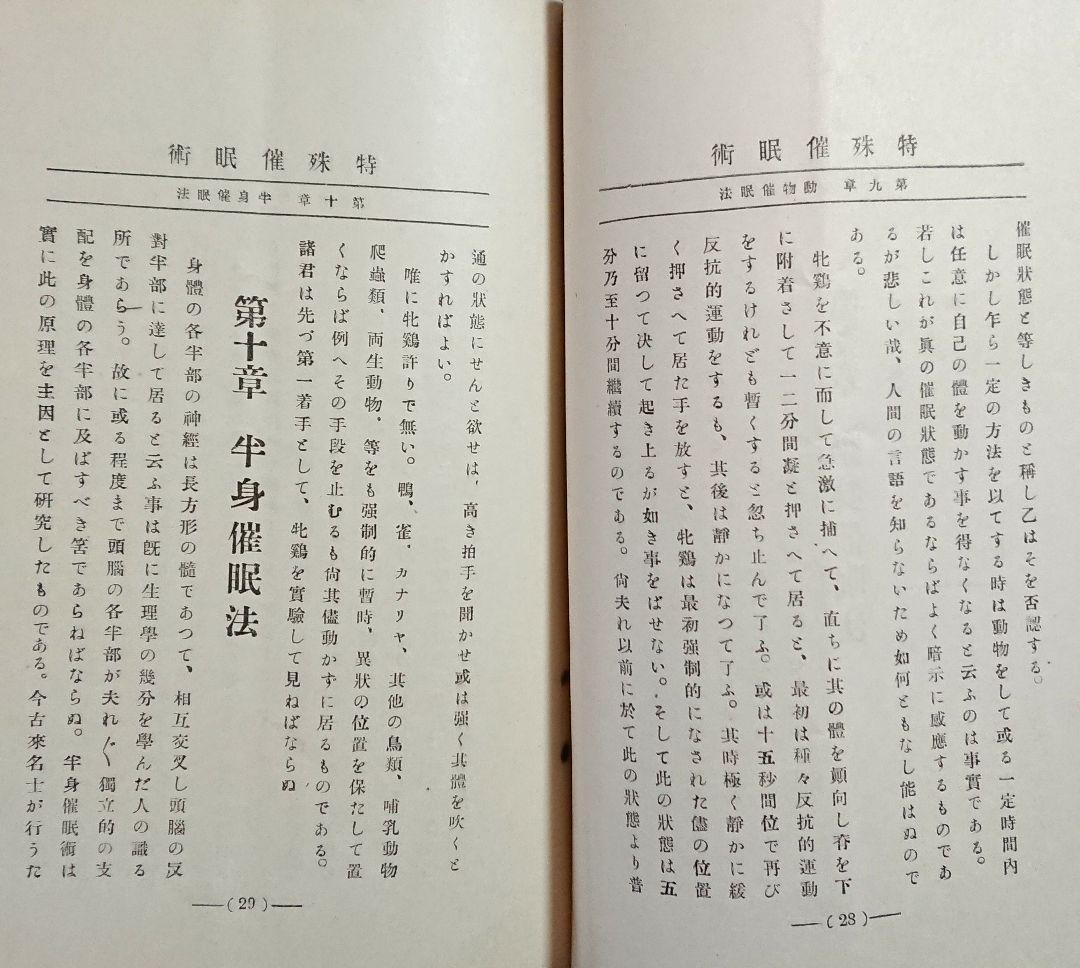 特殊催眠術
第九章 動物催眠法
催眠狀態と等しきものと稱し乙はそを否認する。
しかし乍ら一定の方法を以てする時は動物をして或る一定時間內
は任意に自己の體を動かす事を得なくなると云ふのは事實である。
若しこれが眞の催眠狀態であるならばよく暗示に感應するものであ
るが悲しい哉、人間の言語を知らないため如何ともなし能はぬので
ある。
牝鷄を不意に而して急激に捕へて、直ちに其の體を顚向し脊を下
に附着さして一二分間凝と押さへて居ると、最初は種々反抗的運動
をするけれども暫くすると忽ち止んで了ふ。或は十五秒間位で再び
反抗的運動をするも、其後は靜かになつて了ふ。其時極く靜かに緩
く押さへて居た手を放すと、牝鷄は最初强制的になされた儘の位置
に留つて决して起き上るが如き事をばせない。そして此の狀態は五
分乃至十分間繼續するのである。尙夫れ以前に於て此の狀態より普
(28)
特殊催眠術
第十章 半身催眠法
通の狀態にせんと欲せは、高き拍手を聞かせ或は强く其體を吹くと
かすればよい。
唯に牝鷄許りで無い。鴨、雀、カナリヤ、其他の鳥類、哺乳動物
爬蟲類、両生動物、等をも强制的に暫時、異狀の位置を保たして置
くならば例へその手段を止むるも尙其儘動かずに居るものである。
諸君は先づ第一着手として、牝鷄を實驗して見ねばならぬ
第十章 半身催眠法
身體の各半部の神經は長方形の髓であつて、相互交叉し頭腦の反
對半部に達して居ると云ふ事は旣に生理學の幾分を學んだ人の識る
所であらう。故に或る程度まで頭腦の各半部が夫れ〱獨立的の支
配を身體の各半部に及ばすべき筈であらねばならぬ。半身催眠術は
實に此の原理を主因として研究したものである。今古來名士が行うた
(29)